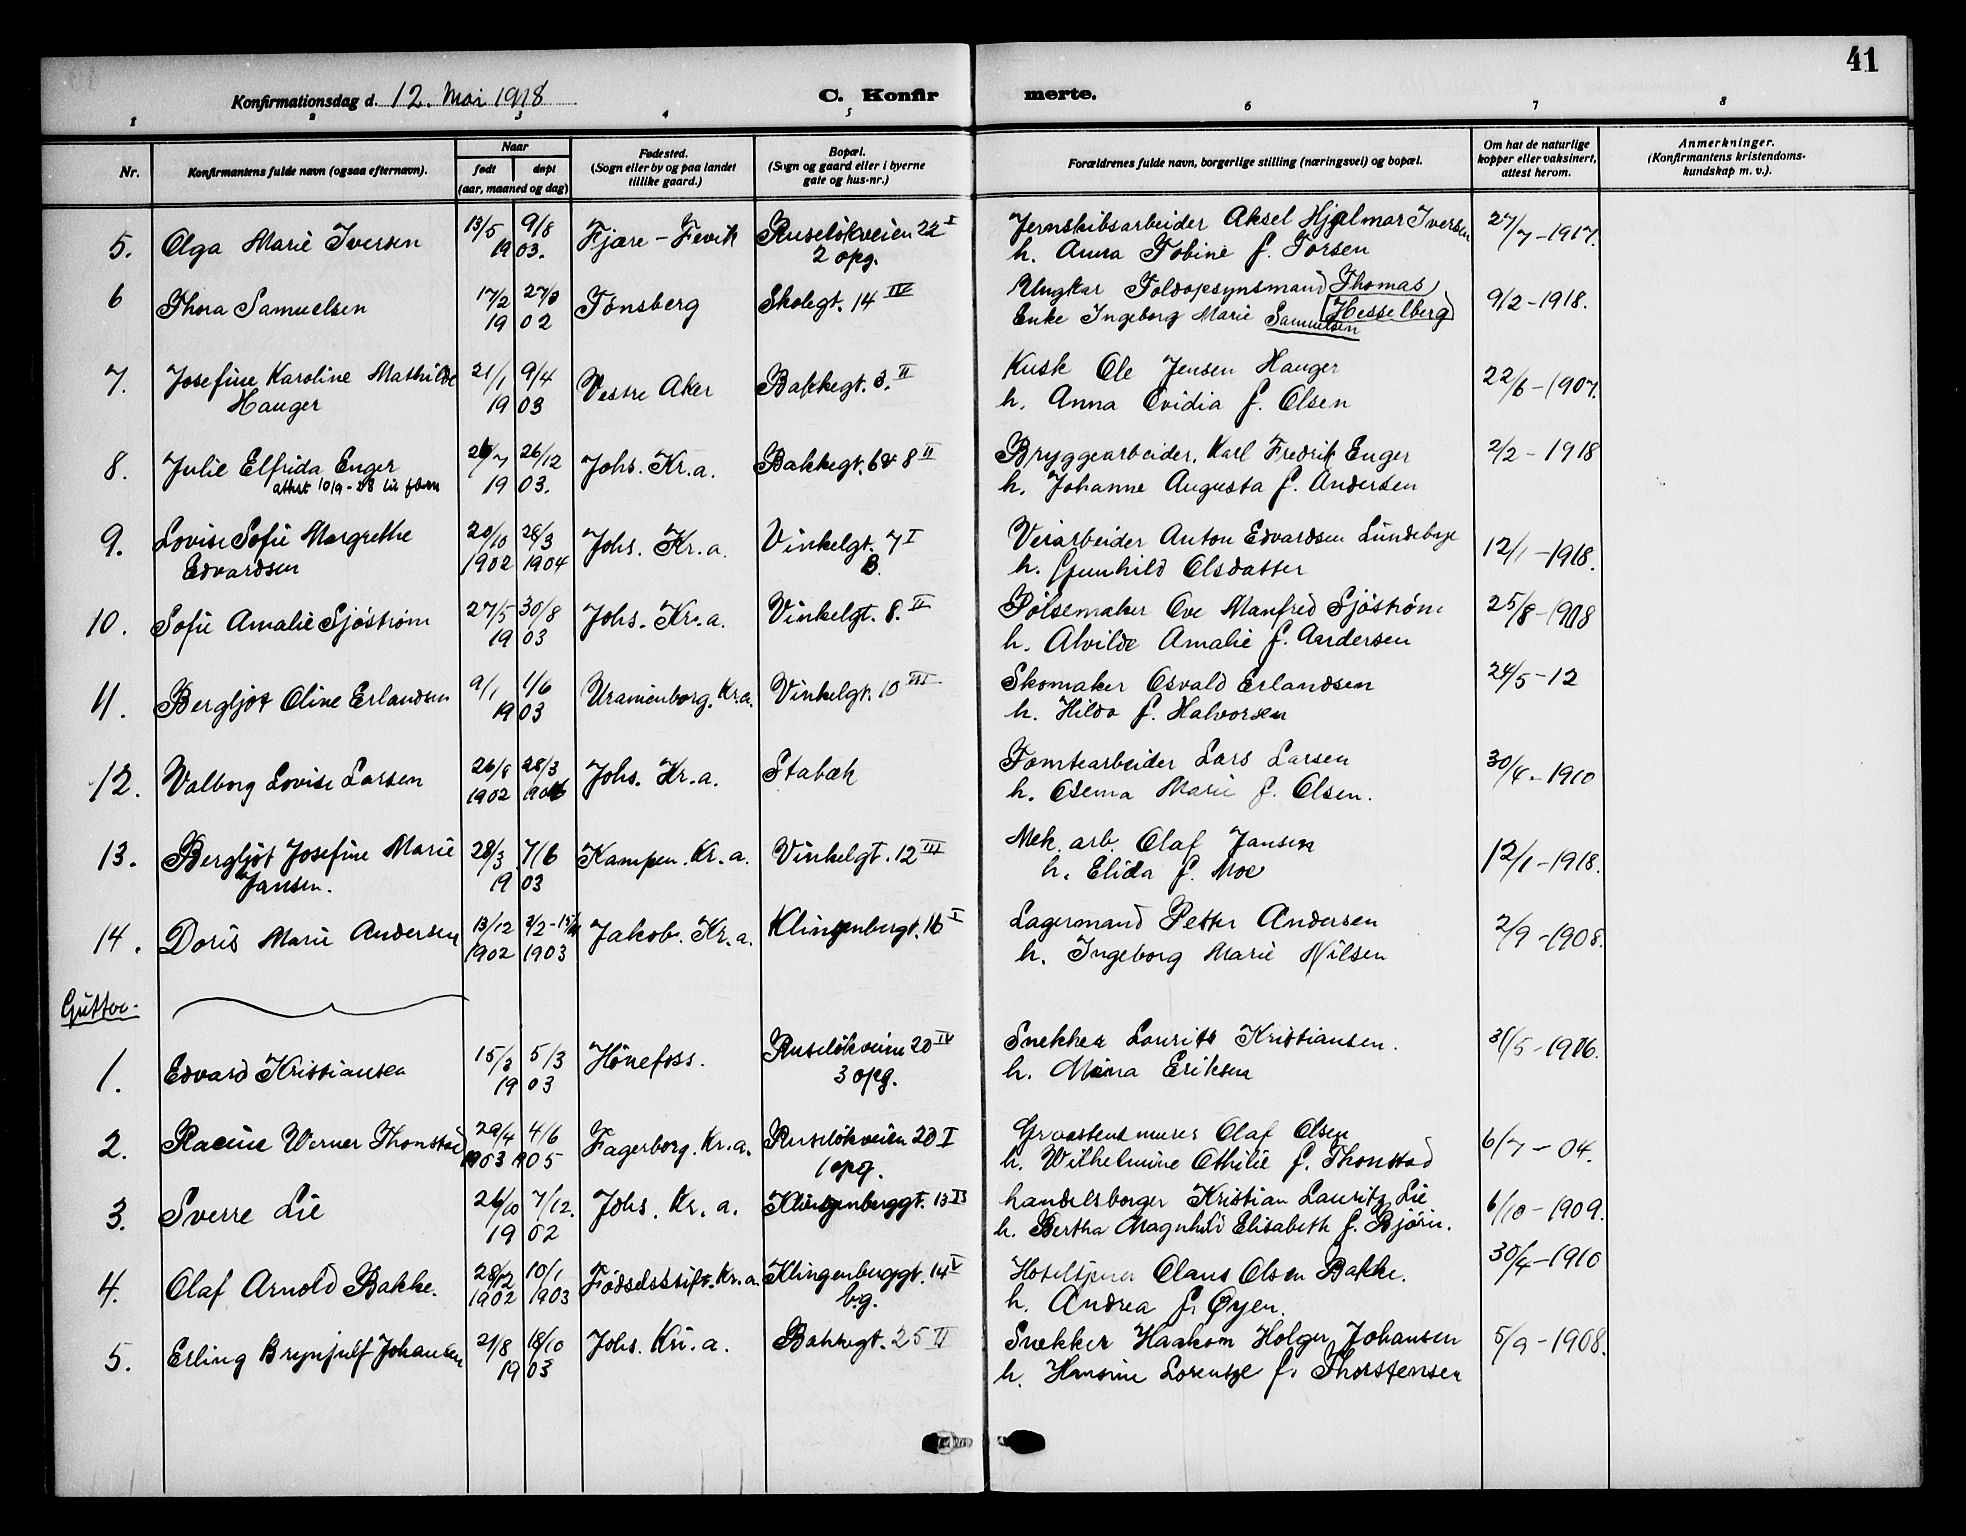 41
Konfirmationsdag d. 12. Mai 1918 C. Konfirmerte.
1 2 3 4 5 6 7 8
Nr. Konfirmantens fulde navn (ogsaa efternavn). Naar født døpt (aar, maaned og dag) Fødested. (Sogn eller by og paa landet tillike gaard.) Bopæl. (Sogn og gaard eller i byerne gate og hus-nr.) Forældrenes fulde navn, borgerlige stilling (næringsvei) og bopæl. Om hat de naturlige kopper eller vaksinert, attest herom. Anmerkninger. (Konfirmantens kristendoms-kundskap m. v.).
5. Olga Marie Iversen 13/5 9/8 1903. Fjære - Fevik Ruseløkveien 22 I 2 opg. Jernskibsarbeider Aksel Hjalmar Iversen 27/7-1917.
h. Anna Tobine f. Torsen
6 Thora Samuelsen 17/2 27/3 1902 Tønsberg Skolegt. 14 IV Ungkar Toldopsynsmand Thomas Hesselberg 9/2-1918.
Enke Ingeborg Marie Samuelsen
7. Josefine Karoline Mathilde Hauger 21/1 9/4 1903 Vestre Aker Bakkegt. 3. II Kusk Ole Jensen Hauger 22/6-1907.
h. Anna Ovidia f. Olsen
8. Julie Elfrida Enger 26/7 26/12 1903. Johs. Kr.a. Bakkegt. 6 & 8 II Bryggearbeider. Karl Fredrik Enger 2/2-1918
attest 10/9-28 til
h. Johanne Augusta f. Andersen
9. Lovise Sofie Margrethe Edvardsen 20/10 1902 28/3 1904 Johs. Kr.a. Vinkelgt. 7 I B. Veiarbeider Anton Edvardsen Lundebye 12/1-1918.
h. Gunhild Olsdatter
10. Sofie Amalie Sjöström 27/5 30/8 1903 Johs. Kr.a. Vinkelgt. 8. II Pølsemaker Ove Manfred Sjöström 25/8-1908
h. Alvilde Amalie f. Andersen
11. Bergljot Oline Erlandsen 9/1 1/6 1903 Uranienborg. Kr.a. Vinkelgt. 10 III Skomaker Osvald Erlandsen 24/5-12
h. Hilda f. Halvorsen
12. Valborg Lovise Larsen 26/8 1902 28/3 Johs. Kr.a. Stabæk Tomtearbeider Lars Larsen 30/4-1910
h. Marie f. Olsen.
13. Bergljot Josefine Marie Jansen. 28/3 7/6 1903 Kampen. Kr.a. Vinkelgt. 12 III Mek. arb. Olaf Jansen 12/1-1918.
h. Elida f. Moe
14. Doris Marie Andersen 13/12 1902 1903 Jakob. Kr.a. Klingenbergt. 16 I Lagermand Petter Andersen 2/9-1908.
h. Ingeborg Marie Nilsen
Gutter.
1. Edvard Kristiansen 15/2 5/3 1903 Hönefoss. Ruseløkveien 20 IV 3 opg. Snekker Laurits Kristiansen. 31/5-1906.
h. Mina Eriksen
2. Racine Werner Thonstad 29/4 1903 4/6 1905 Fagerborg. Kr.a. Ruseløkveien 20 I 1 opg. Graastensmurer Olaf Olsen 6/7-04.
h. Wilhelmine Othilie f. Thonstad
3. Sverre Lie 26/10 7/12. 1902 Johs. Kr.a. Klingenberggt. 13 II handelsborger Kristian Lauritz Lie 6/10-1909.
h. Bertha Magnhild Elisabeth f. Bjørn.
4. Olaf Arnold Bakke. 28/12 1902 10/1 1903 Födselsstift. Kr.a. Klingenberggt. 14 V b.g. Claus Olsen Bakke. 30/4-1910
h. Andrea f. Øyen.
5. Erling Brynjulf Johansen 21/8 18/10 1903 Johs. Kr.a. Bakkegt. 25 II Snekker Haakon Holger Johansen 5/9-1908.
h. Hansine Lorentze f. Thorstensen